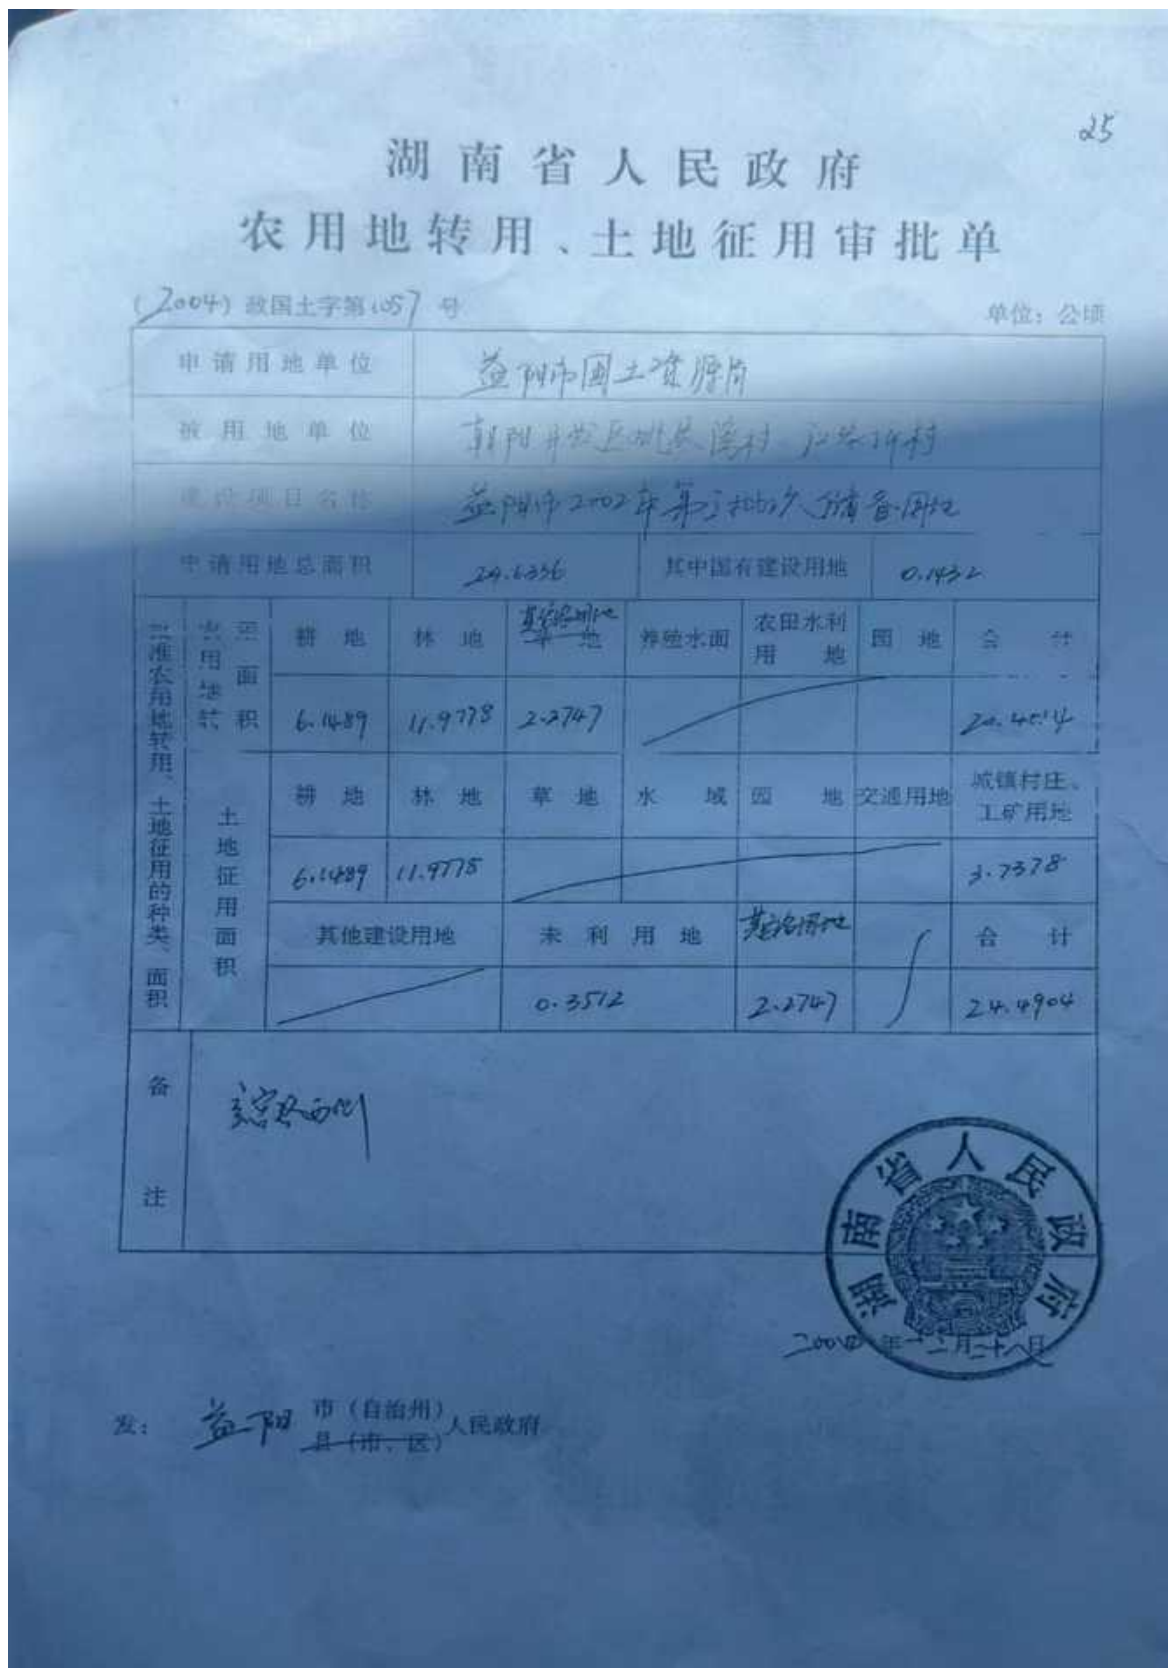 25
湖南省人民政府
农用地转用、土地征用审批单
(2004) 政国土字第1057号
单位：公顷
申请用地单位 益阳市国土资源局
被用地单位 朝阳开发区
建设项目名称 益阳市2002年第三批次储备用地
申请用地总面积 24.6336 其中国有建设用地 0.1432
批准农用地转用、土地征用的种类、面积
农用地转用面积
耕地 林地 其它农用地 养殖水面 农田水利用地 园地 合计
6.1489 11.9778 2.2747 20.4014
土地征用面积
耕地 林地 草地 水域 园地 交通用地 城镇村庄、工矿用地
6.1489 11.9778 3.7378
其他建设用地 未利用地 其它农用地 合计
0.3512 2.2747 24.4904
备注
湖南省人民政府
2004年十二月二十八日
发：益阳 市（自治州） 人民政府
县（市、区）